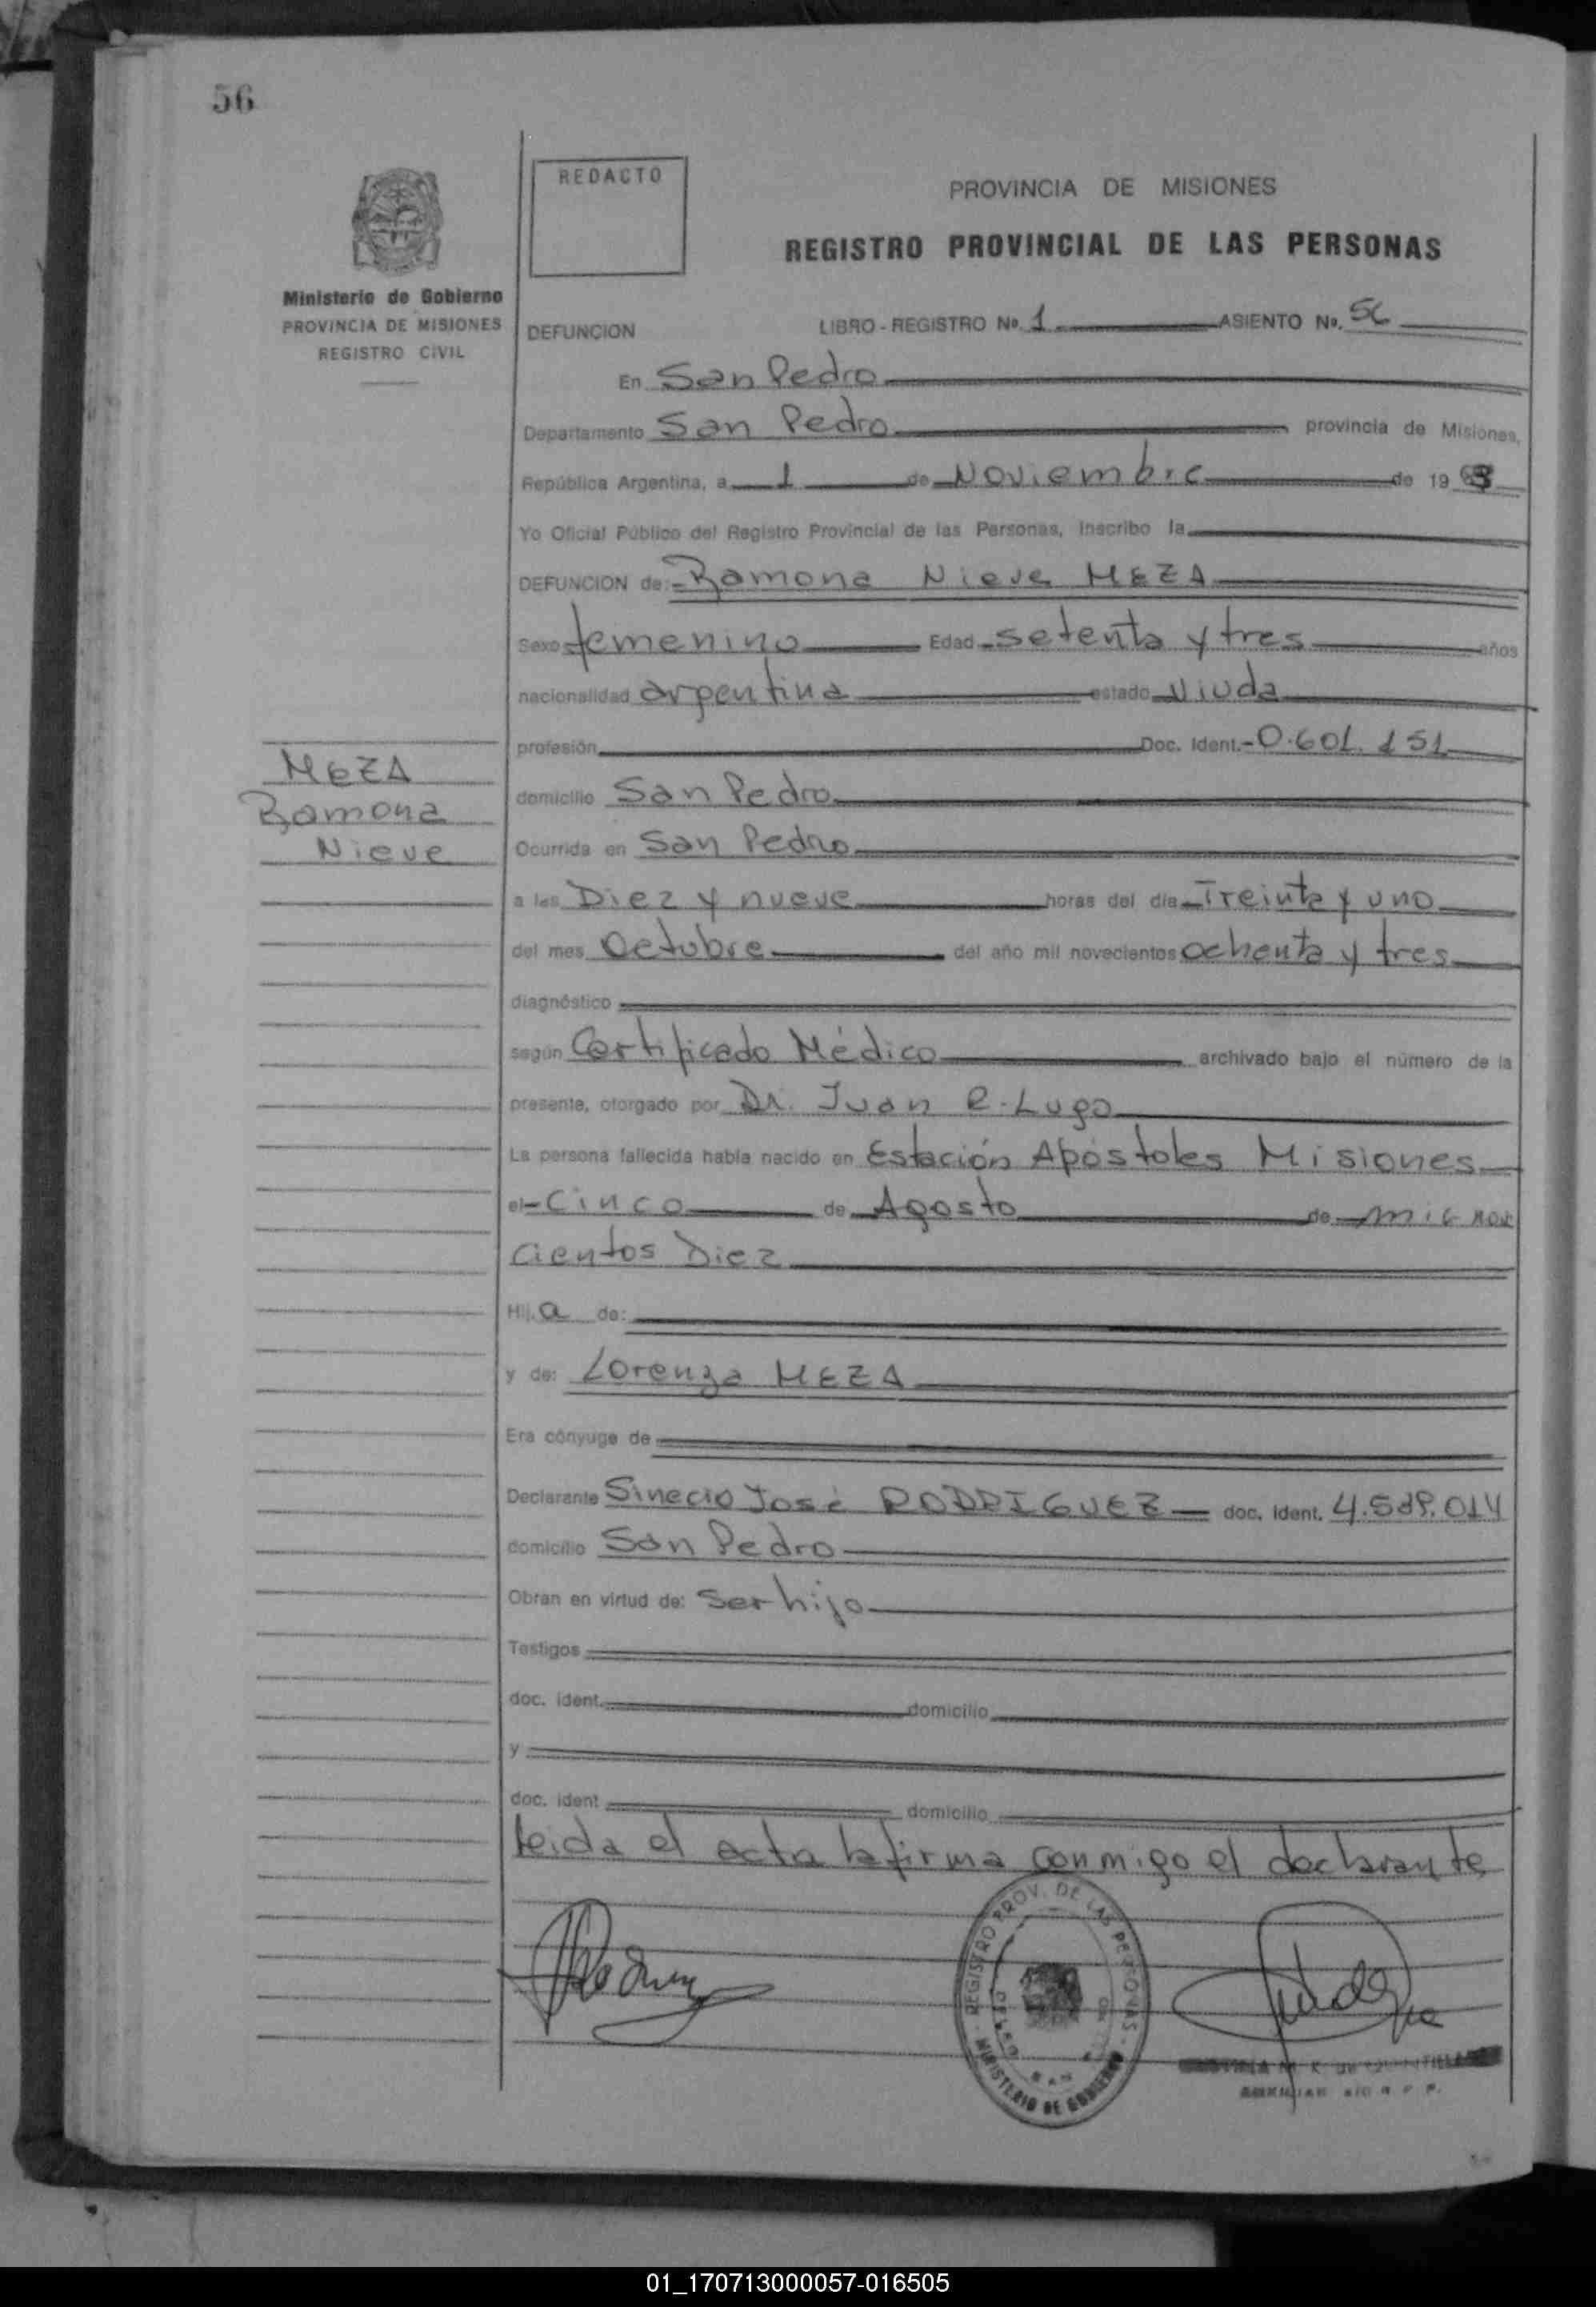 56
REDACTO
PROVINCIA DE MISIONES
REGISTRO PROVINCIAL DE LAS PERSONAS
Ministerio de Gobierno
PROVINCIA DE MISIONES
REGISTRO CIVIL
DEFUNCION LIBRO - REGISTRO No. 1 ASIENTO No. 56
En San Pedro
Departamento San Pedro provincia de Misiones,
República Argentina, a 1 de Noviembre de 19 83
Yo Oficial Público del Registro Provincial de las Personas, inscribo la
DEFUNCION de: Ramona Nieve MEZA
Sexo femenino Edad setenta y tres años
nacionalidad argentina estado Viuda
profesión Doc. Ident. 0.601.151
MEZA
Ramona
Nieve
domicilio San Pedro
Ocurrida en San Pedro
a las Diez y nueve horas del día Treinta y uno
del mes Octubre del año mil novecientos ochenta y tres
diagnóstico
según Certificado Médico archivado bajo el número de la
presente, otorgado por Dr. Juan R. Lugo
La persona fallecida había nacido en Estación Apóstoles Misiones
el Cinco de Agosto de mil nove
cientos Diez
Hij a de:
y de: Lorenza MEZA
Era cónyuge de
Declarante Sinecio José RODRIGUEZ doc. ident. 4.589.014
domicilio San Pedro
Obran en virtud de: Ser hijo
Testigos
doc. ident. domicilio
y
doc. ident domicilio
leida el acta la firma conmigo el declarante
REGISTRO PROV. DE LAS PERSONAS
MINISTERIO DE GOBIERNO
01_170713000057-016505